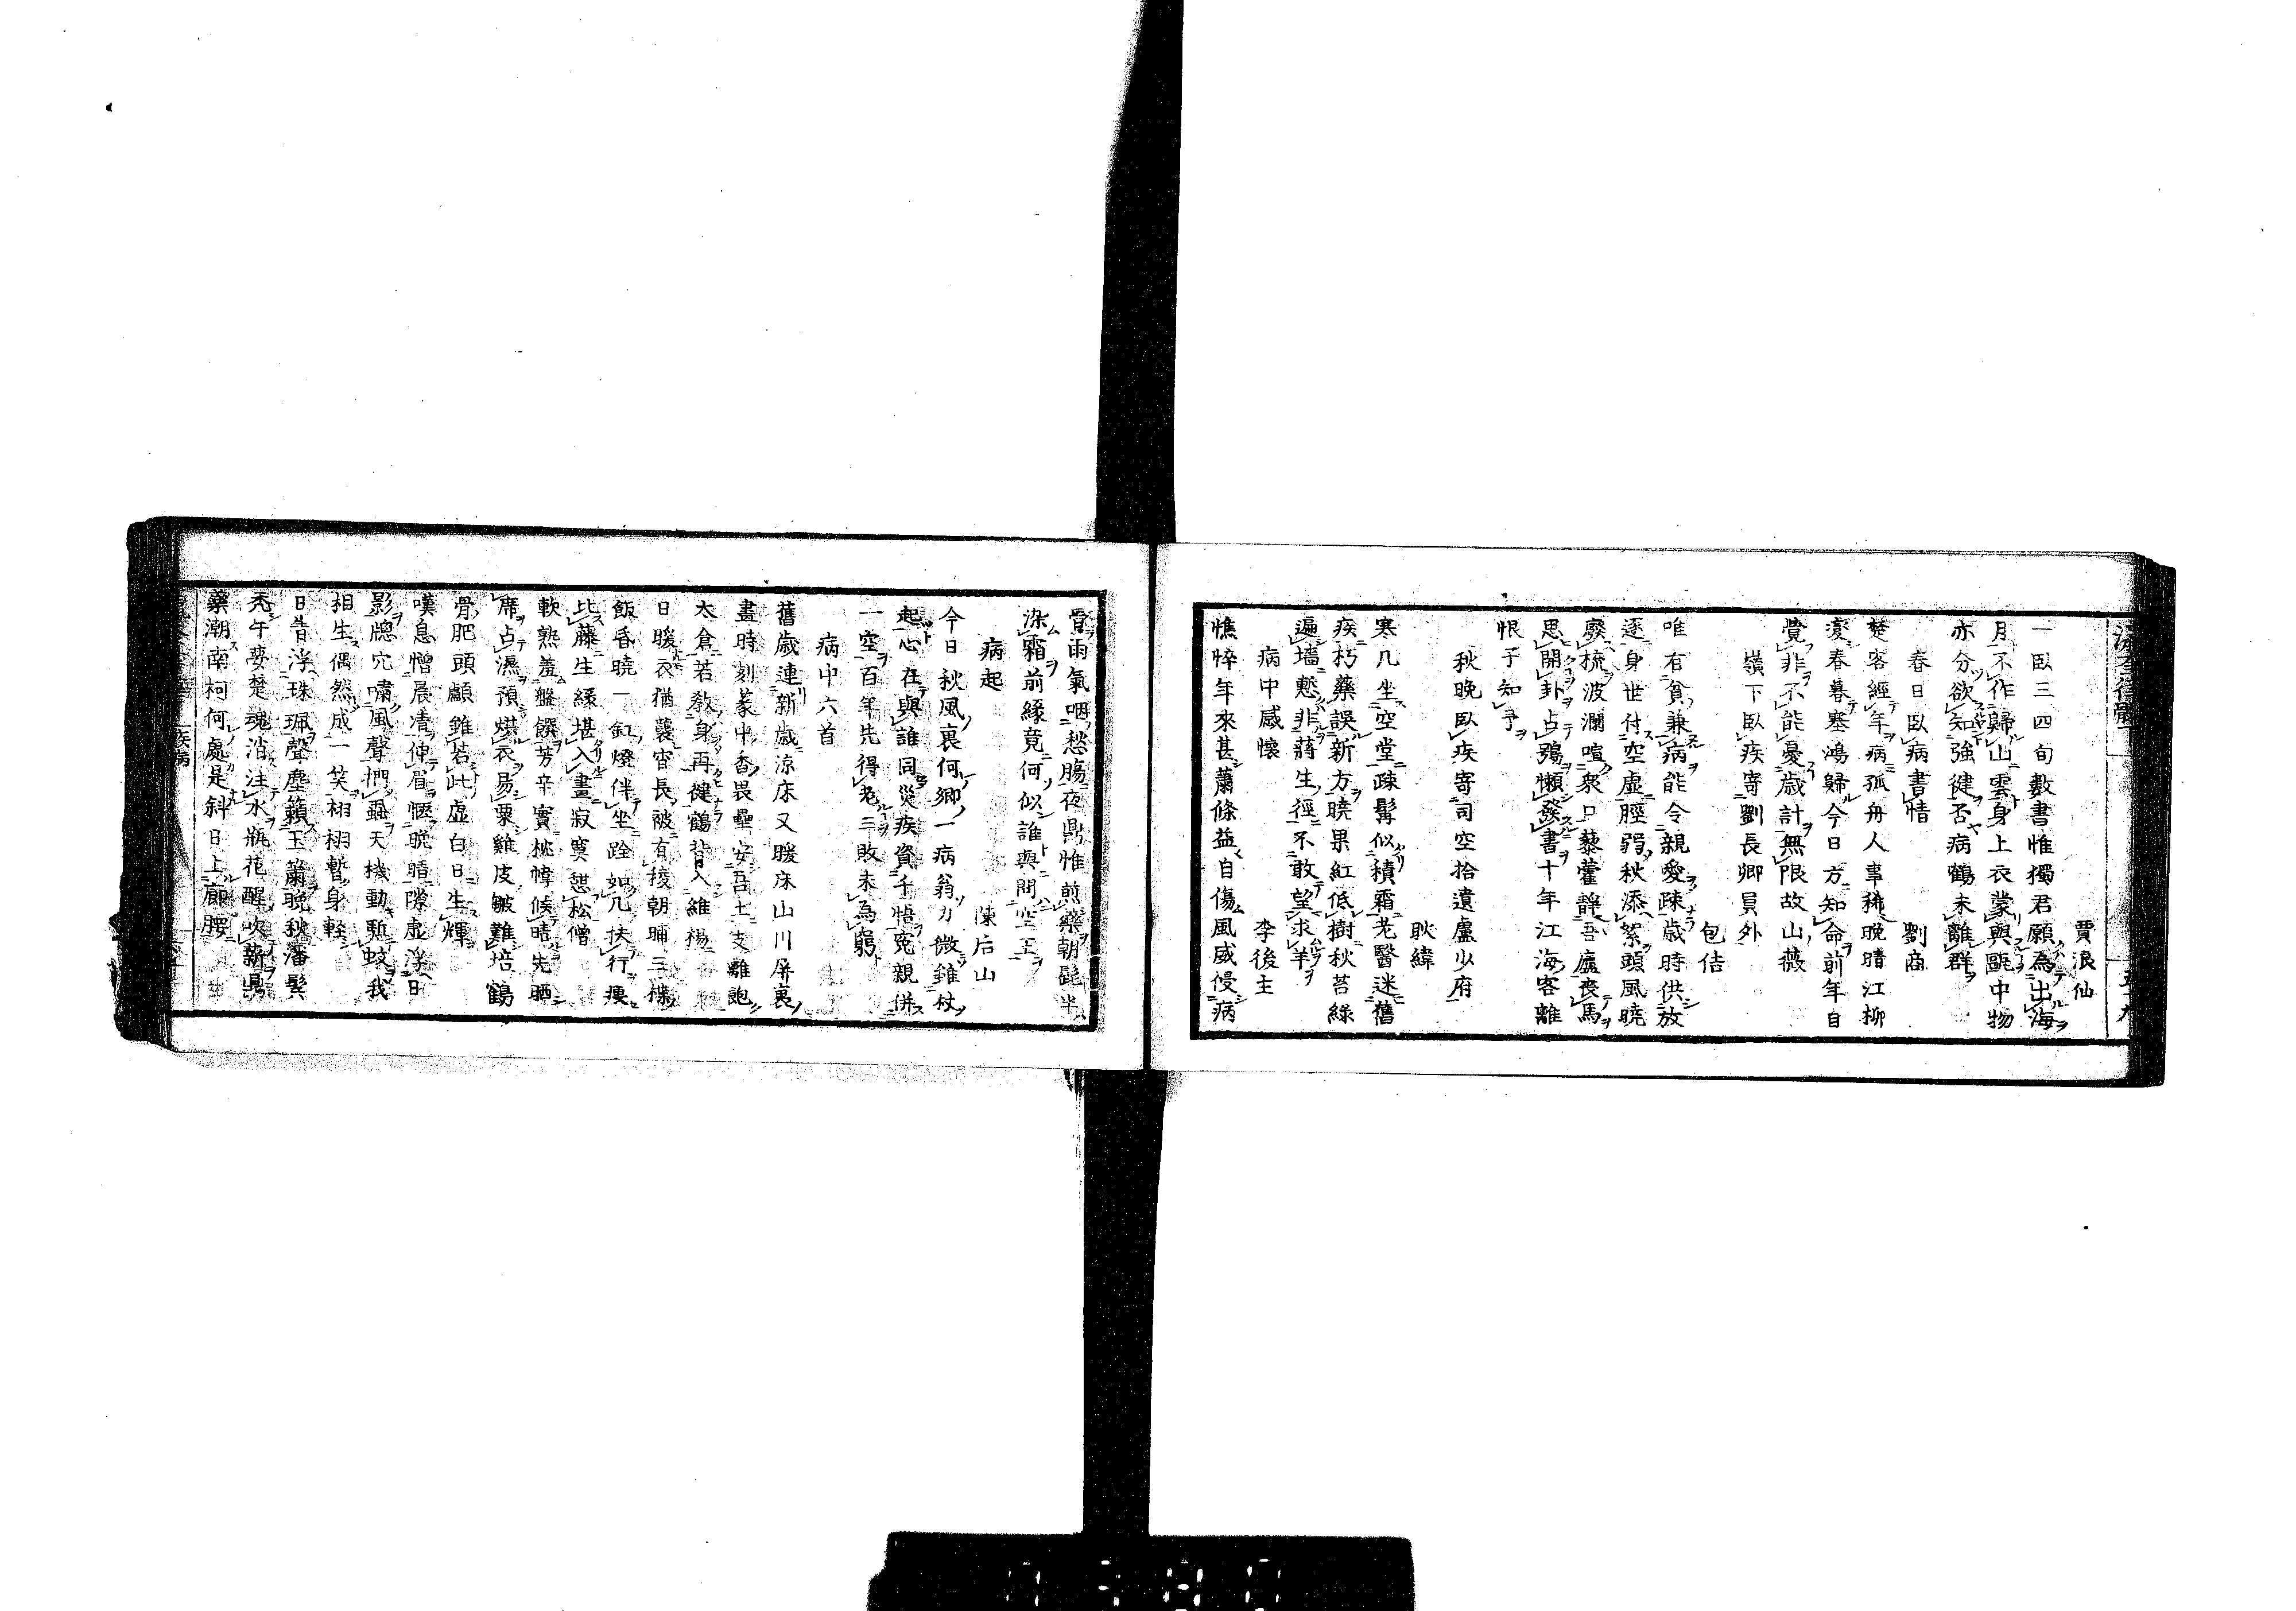 賈浪仙
一臥三四旬數書惟獨君願為出海
月不作歸山雲身上衣蒙與甌中物
亦分欲知強健否病鶴未離群
春日臥病書情　劉商
楚客經年病孤舟人事稀晚晴江柳
變春暮塞鴻歸今日方知命前年自
覺非不能憂歲計無限故山薇
嶺下臥疾寄劉長卿員外
包佶
唯有貧兼病能令親愛疎歲時供放
逐身世付空虛脛弱秋添絮頭風曉
廢梳波瀾喧衆口藜藿靜吾廬喪馬
思開卦占鴞懶發書十年江海客離
恨子知予
秋晚臥疾寄司空拾遺盧少府
耿緯
寒几坐空堂疎髯似積霜老醫迷舊
疾朽藥誤新方曉果紅低樹秋苔綠
遍墻慙非蔣生徑不敢望求羊
病中感懷　李後主
憔悴年來甚蕭條益自傷風威侵病
骨雨氣咽愁腸夜鼎惟煎藥朝髭半
染霜前緣竟何似誰與問空王
病起　陳后山
今日秋風裏何鄉一病翁力微雖杖
起心在與誰同災疾資千悟冤親併
一空百年先得老三敗未為窮
病中六首
舊歲連新歲涼床又暖床山川屏裏
畫時刻篆中香畏壘安吾土支離飽
太倉若教身再健鶴背入維楊
日暖衣猶襲宵長被有稜朝晡三楪
飯昏曉一釭燈伴坐跧如几扶行瘦
比藤生緣堪入畫寂寞恕松僧
軟熟羞盤饌芳辛實枕幃候晴先晒
席占濕預烘衣易粟雞皮皺難培鶴
骨肥頭顱雖若此虛白日生輝
嘆息憎晨清伸眉愜晚晴隙虛浮日
影牎穴嘯風聲捫蝨天機動驅蚊我
相生偶然成一笑栩栩暫身輕
日昔浮珠珮聲塵籟玉簫晚秋潘鬂
禿午夢楚魂消注水瓶花醒吹薪鼎
藥潮南柯何處是斜日上廊腰
疾病